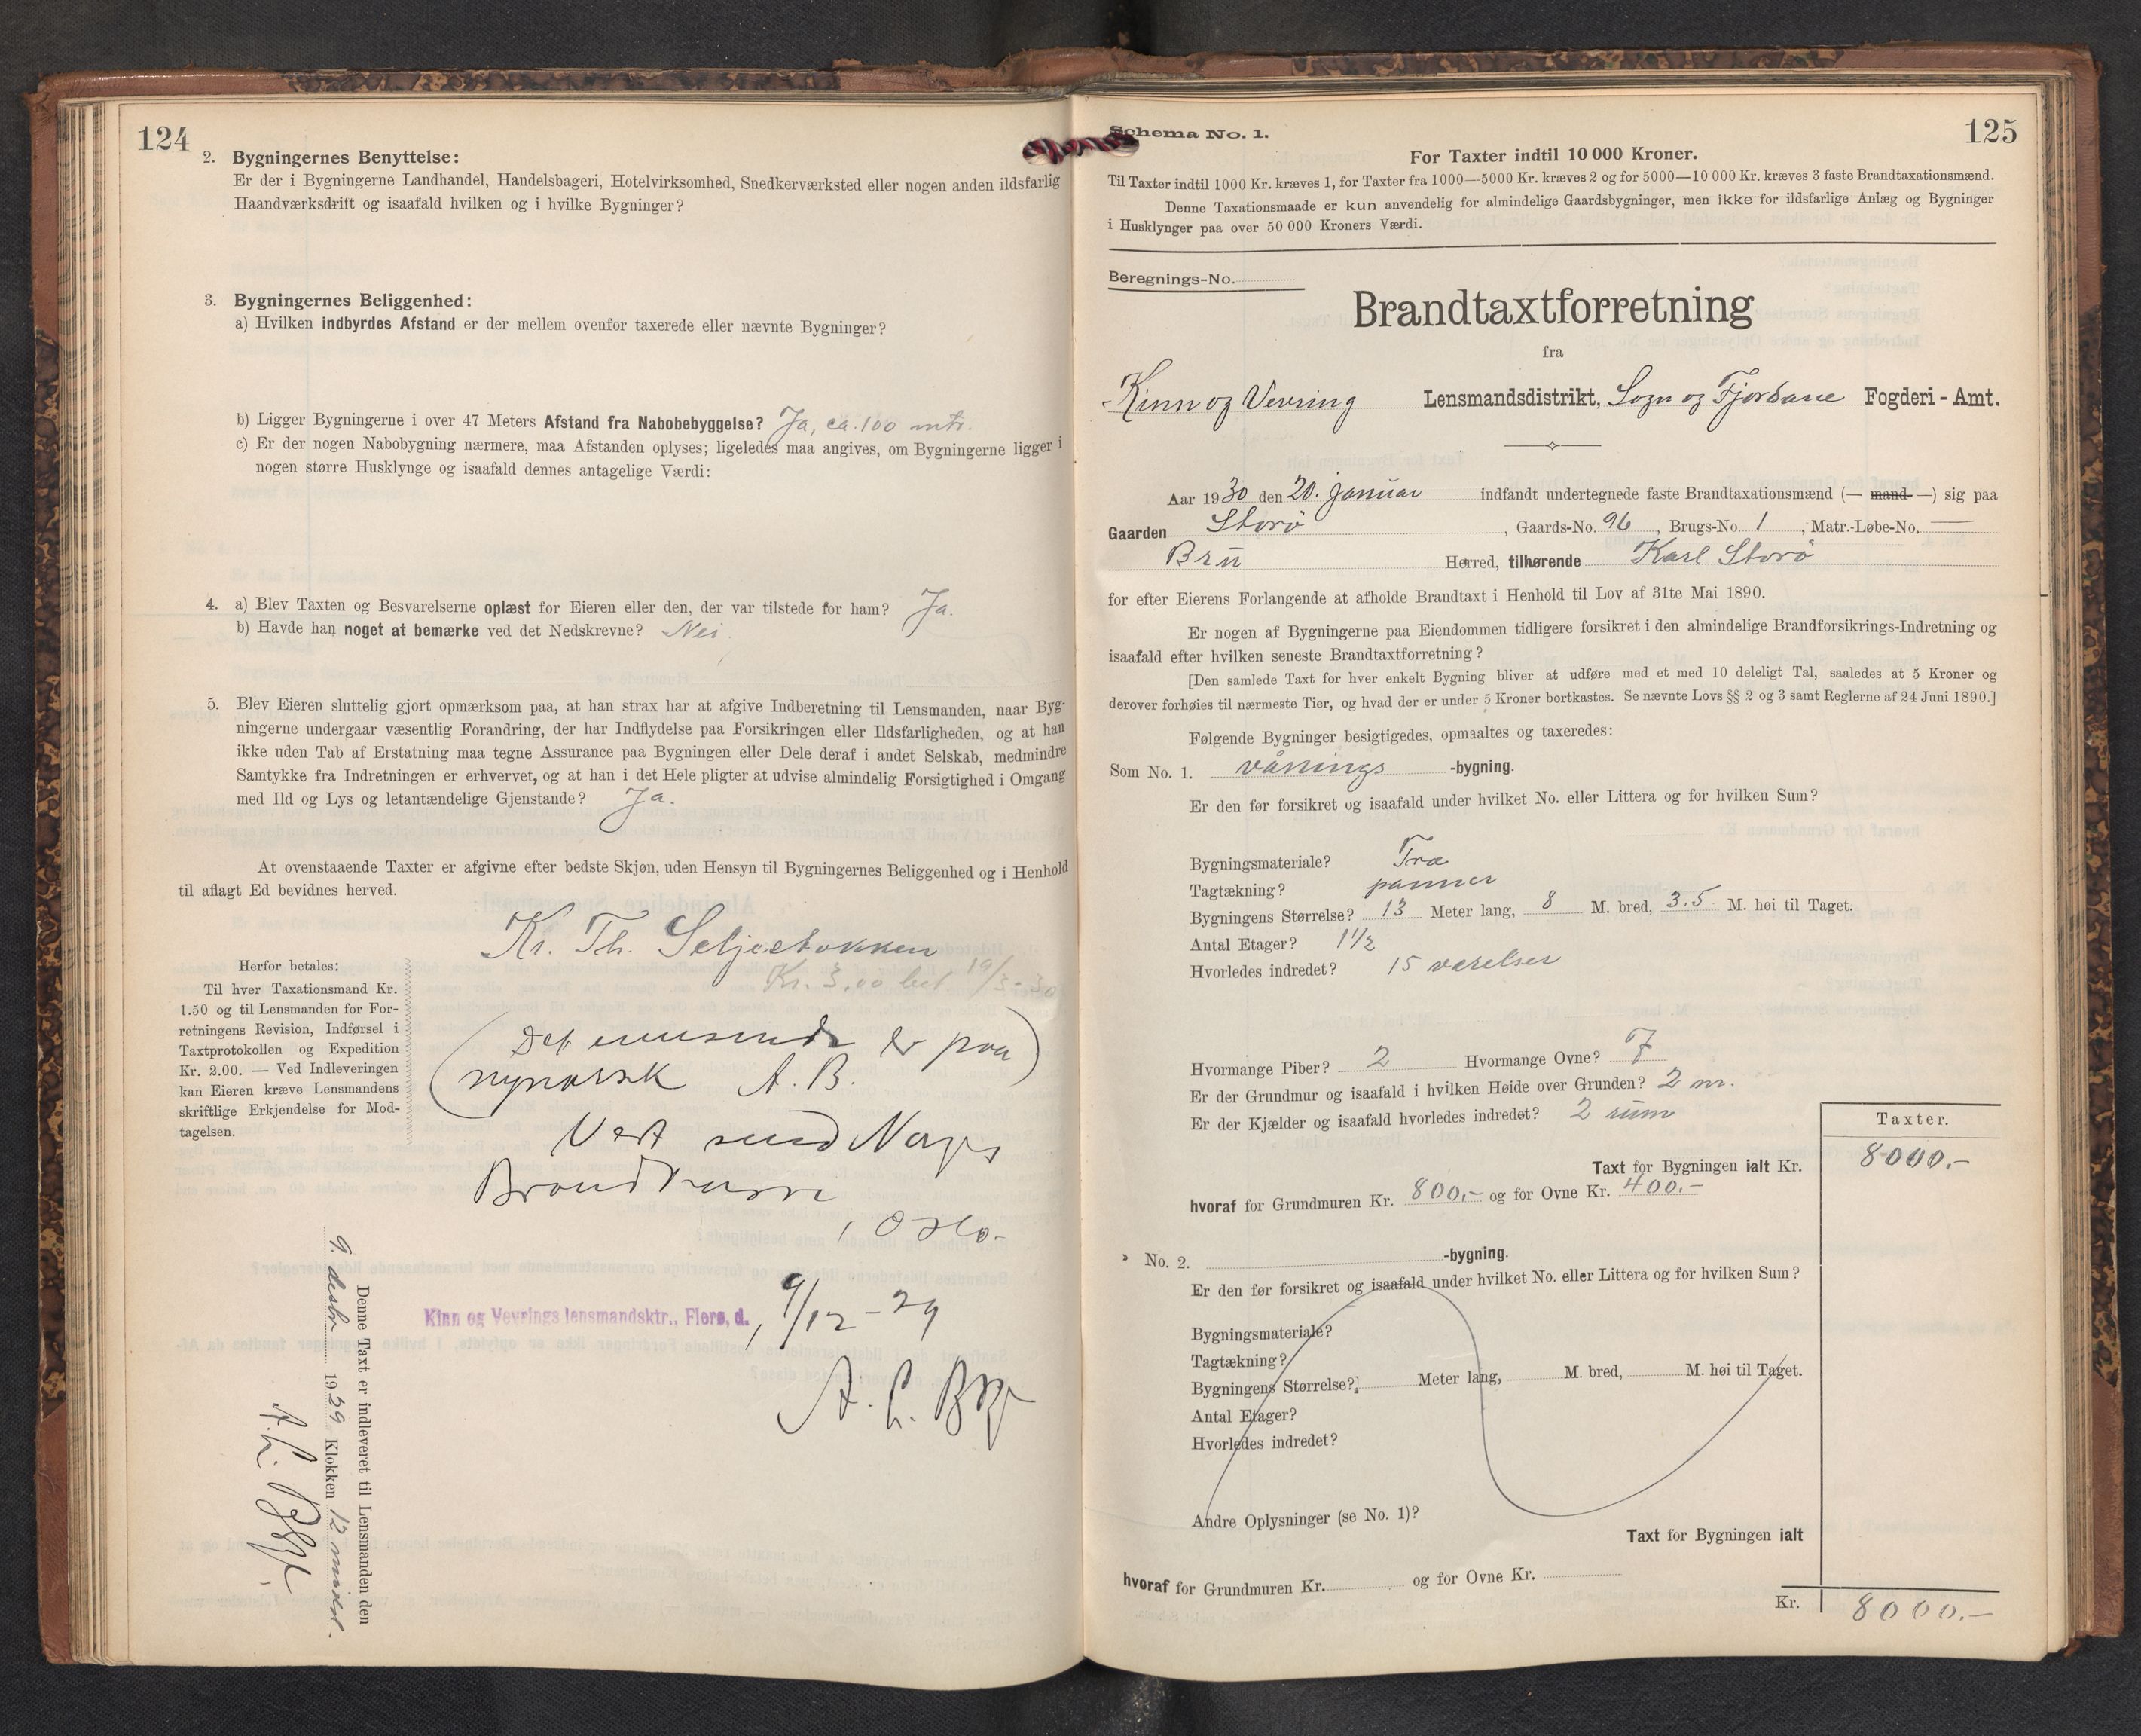 124
2. Bygningernes Benyttelse:
Er der i Bygningerne Landhandel, Handelsbageri, Hotelvirksomhed, Snedkerværksted eller nogen anden ildsfarlig
Haandværksdrift og isaafald hvilken og i hvilke Bygninger?
3. Bygningernes Beliggenhed:
a) Hvilken indbyrdes Afstand er der mellem ovenfor taxerede eller nævnte Bygninger?
b) Ligger Bygningerne i over 47 Meters Afstand fra Nabobebyggelse? Ja, ca. 100 mtr.
c) Er der nogen Nabobygning nærmere, maa Afstanden oplyses; ligeledes maa angives, om Bygningerne ligger i
nogen større Husklynge og isaafald dennes antagelige Værdi:
4. a) Blev Taxten og Besvarelserne oplæst for Eieren eller den, der var tilstede for ham? Ja.
b) Havde han noget at bemærke ved det Nedskrevne? Nei.
5. Blev Eieren sluttelig gjort opmærksom paa, at han strax har at afgive Indberetning til Lensmanden, naar Byg-
ningerne undergaar væsentlig Forandring, der har Indflydelse paa Forsikringen eller Ildsfarligheden, og at han
ikke uden Tab af Erstatning maa tegne Assurance paa Bygningen eller Dele deraf i andet Selskab, medmindre
Samtykke fra Indretningen er erhvervet, og at han i det Hele pligter at udvise almindelig Forsigtighed i Omgang
med Ild og Lys og letantændelige Gjenstande? Ja.
At ovenstaaende Taxter er afgivne efter bedste Skjøn, uden Hensyn til Bygningernes Beliggenhed og i Henhold
til aflagt Ed bevidnes herved.
Kr. Th. Seljestokken
Kr. 3.00 bet. 19/3-30
Herfor betales:
Til hver Taxationsmand Kr.
1.50 og til Lensmanden for For-
retningens Revision, Indførsel i
Taxtprotokollen og Expedition
Kr. 2.00. — Ved Indleveringen
kan Eieren kræve Lensmandens
skriftlige Erkjendelse for Mod-
tagelsen.
(Det innsende er paa
nynorsk A. B.)
Vert send Norges
Brandkasse
i Oslo.
Kinn og Vevrings lensmandsktr., Florø, d. 9/12-29
Denne Taxt er indleveret til Lensmanden den
9. desbr 1929 Klokken 12 middel.
125
Schema No. 1.
For Taxter indtil 10 000 Kroner.
Til Taxter indtil 1000 Kr. kræves 1, for Taxter fra 1000—5000 Kr. kræves 2 og for 5000—10 000 Kr. kræves 3 faste Brandtaxationsmænd.
Denne Taxationsmaade er kun anvendelig for almindelige Gaardsbygninger, men ikke for ildsfarlige Anlæg og Bygninger
i Husklynger paa over 50 000 Kroners Værdi.
Beregnings-No.
Brandtaxtforretning
fra
Kinn og Vevring Lensmandsdistrikt, Sogn og Fjordane Fogderi - Amt.
Aar 1930 den 20. januar indfandt undertegnede faste Brandtaxationsmænd (— mand —) sig paa
Gaarden Storø, Gaards-No. 96, Brugs-No. 1, Matr.-Løbe-No. —
Bru Herred, tilhørende Karl Storø
for efter Eierens Forlangende at afholde Brandtaxt i Henhold til Lov af 31te Mai 1890.
Er nogen af Bygningerne paa Eiendommen tidligere forsikret i den almindelige Brandforsikrings-Indretning og
isaafald efter hvilken seneste Brandtaxtforretning?
[Den samlede Taxt for hver enkelt Bygning bliver at udføre med et med 10 deleligt Tal, saaledes at 5 Kroner og
derover forhøies til nærmeste Tier, og hvad der er under 5 Kroner bortkastes. Se nævnte Lovs §§ 2 og 3 samt Reglerne af 24 Juni 1890.]
Følgende Bygninger besigtigedes, opmaaltes og taxeredes:
Som No. 1. vånings -bygning.
Er den før forsikret og isaafald under hvilket No. eller Littera og for hvilken Sum?
Bygningsmateriale? Træ
Tagtækning? panner
Bygningens Størrelse? 13 Meter lang, 8 M. bred, 3.5 M. høi til Taget.
Antal Etager? 1 1/2
Hvorledes indredet? 15 værelser
Hvormange Piber? 2 Hvormange Ovne? 7
Er der Grundmur og isaafald i hvilken Høide over Grunden? 2 m.
Er der Kjælder og isaafald hvorledes indredet? 2 rum
Taxter.
Taxt for Bygningen ialt Kr. 8000.-
hvoraf for Grundmuren Kr. 800.- og for Ovne Kr. 400.-
» No. 2. -bygning.
Er den før forsikret og isaafald under hvilket No. eller Littera og for hvilken Sum?
Bygningsmateriale?
Tagtækning?
Bygningens Størrelse? Meter lang, M. bred, M. høi til Taget.
Antal Etager?
Hvorledes indredet?
Andre Oplysninger (se No. 1)?
Taxt for Bygningen ialt
hvoraf for Grundmuren Kr. og for Ovne Kr.
Kr. 8000.-